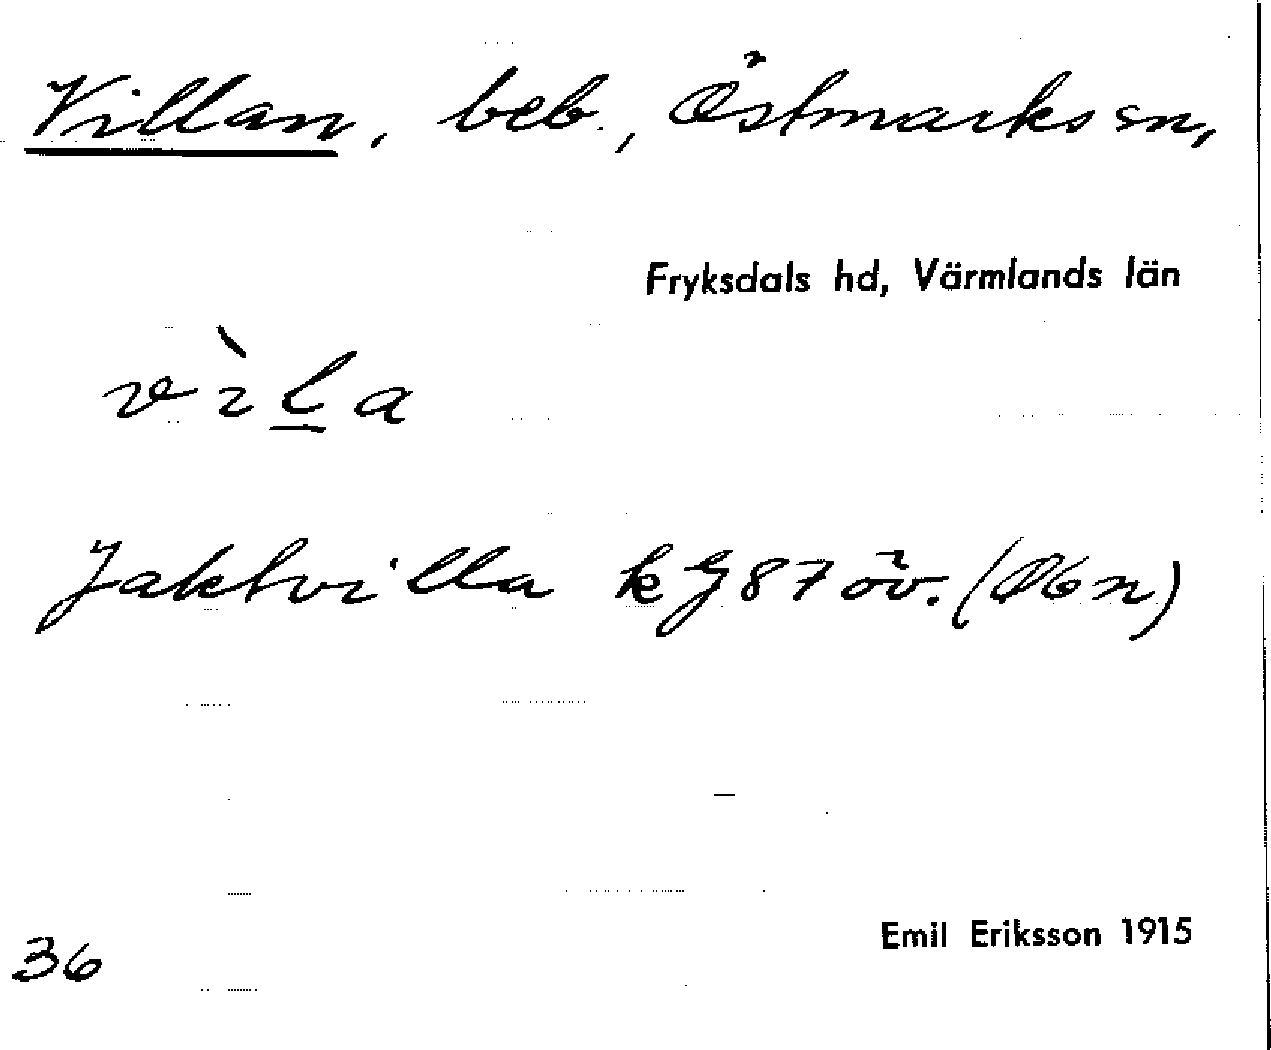 Villan, beb., Östmarks sn,
Fryksdals hd, Värmlands län
vìla
Jaktvilla kJ87öv. (Ö6n)
36
Emil Eriksson 1915